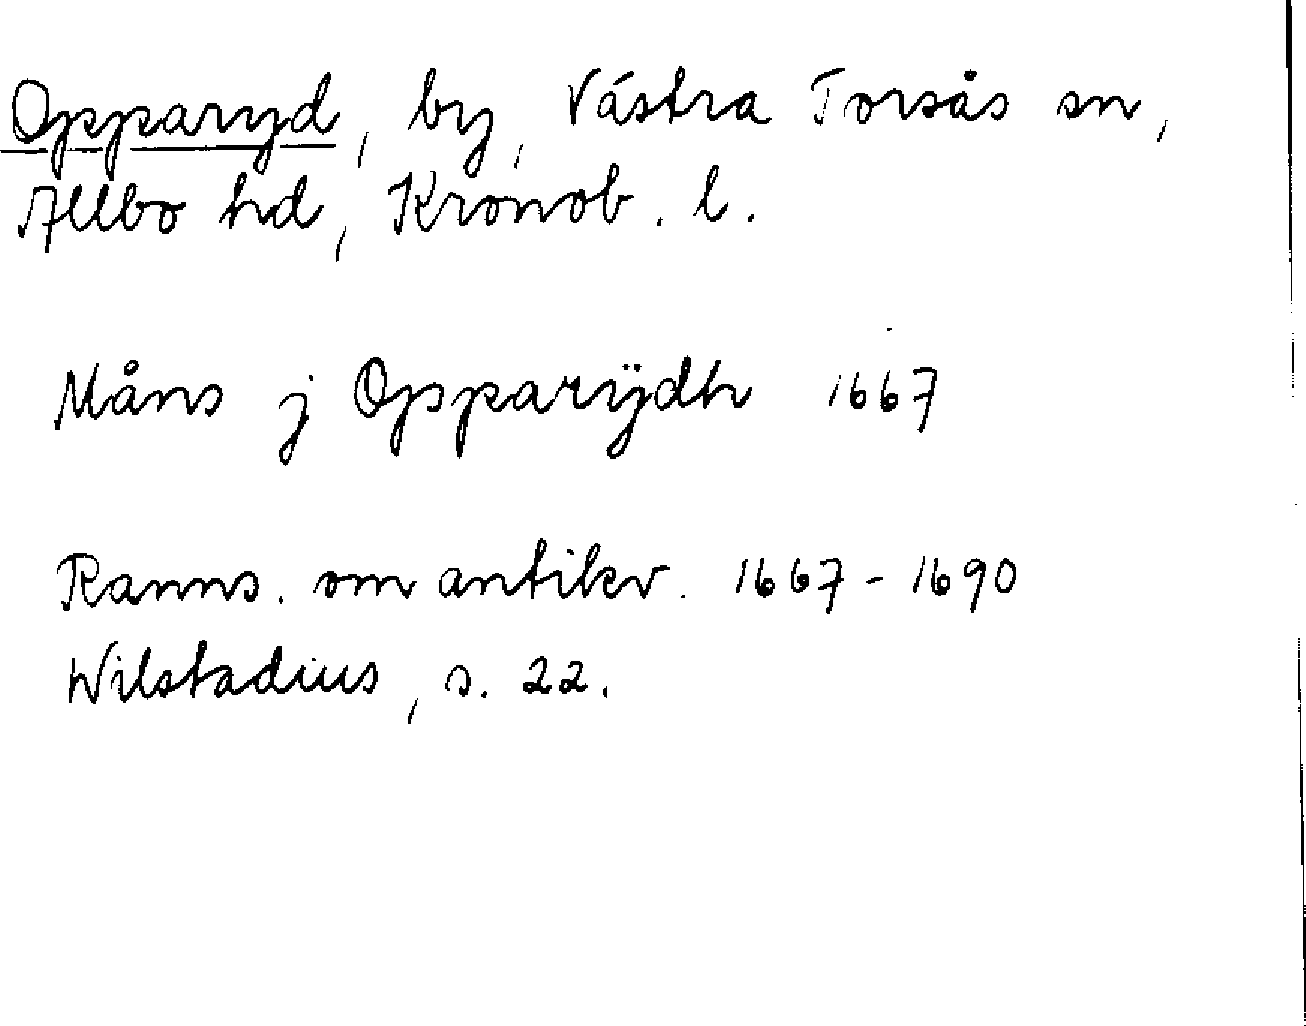 Opparyd, by, Västra Torsås sn,
Allbo hd, Kronob. l.
Måns j Opparÿdh 1667
Ranns. om antikv. 1667-1690
Wilstadius, s. 22.